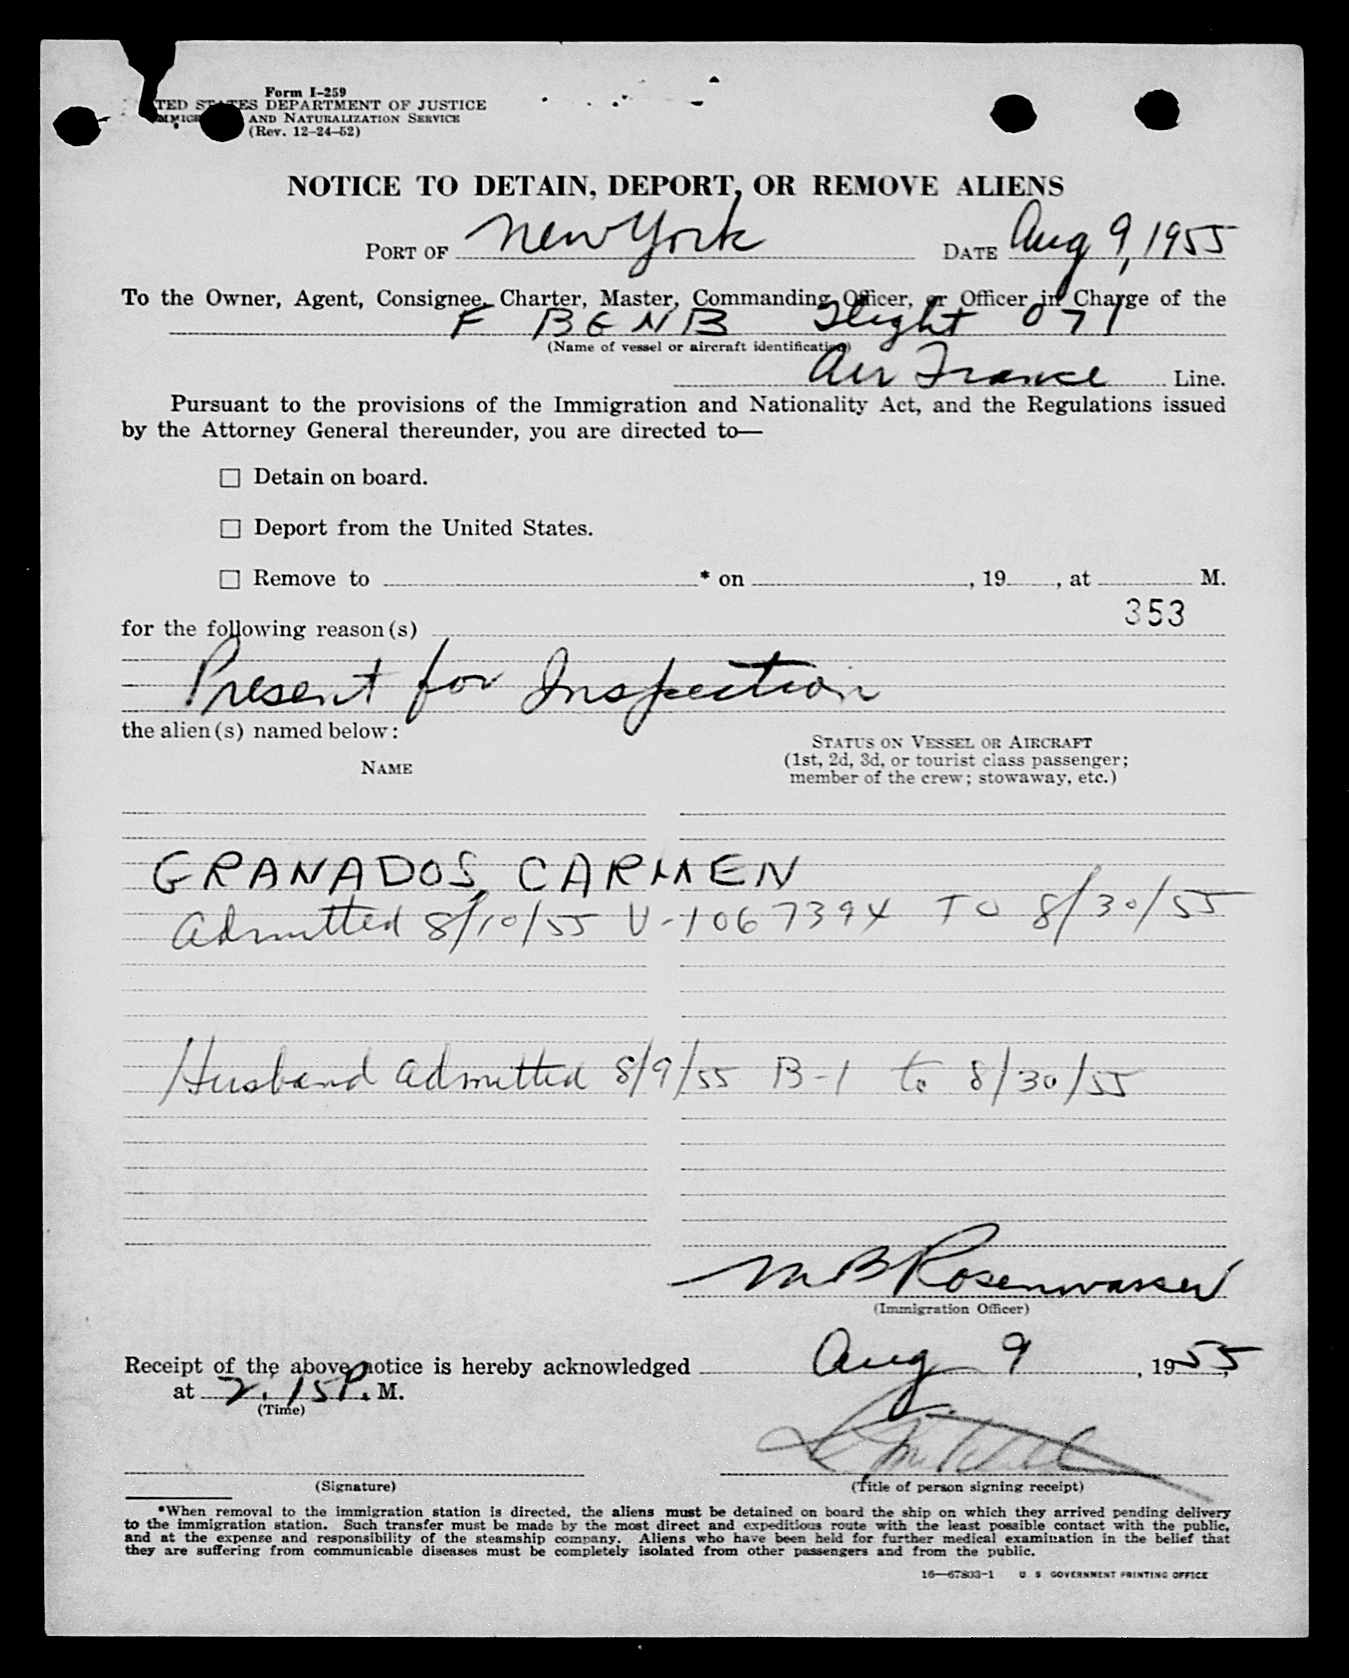 Form I-259
TED STATES DEPARTMENT OF JUSTICE
AND NATURALIZATION SERVICE
(Rev. 12-24-52)
NOTICE TO DETAIN, DEPORT, OR REMOVE ALIENS
PORT OF New York DATE Aug 9, 1955
To the Owner, Agent, Consignee, Charter, Master, Commanding Officer, or Officer in Charge of the
F BENB Flight 071
(Name of vessel or aircraft identification)
Air France Line.
Pursuant to the provisions of the Immigration and Nationality Act, and the Regulations issued
by the Attorney General thereunder, you are directed to—
☐ Detain on board.
☐ Deport from the United States.
☐ Remove to * on , 19 , at M.
353
for the following reason(s)
Present for Inspection
the alien(s) named below:
NAME
STATUS ON VESSEL OR AIRCRAFT
(1st, 2d, 3d, or tourist class passenger;
member of the crew; stowaway, etc.)
GRANADOS, CARMEN
Admitted 8/10/55 V-1067394 TO 8/30/55
Husband admitted 8/9/55 B-1 to 8/30/55
M B Rosenwasser
(Immigration Officer)
Receipt of the above notice is hereby acknowledged Aug 9, 1955,
at 2.15 P. M.
(Time)
(Signature)
(Title of person signing receipt)
*When removal to the immigration station is directed, the aliens must be detained on board the ship on which they arrived pending delivery
to the immigration station. Such transfer must be made by the most direct and expeditious route with the least possible contact with the public,
and at the expense and responsibility of the steamship company. Aliens who have been held for further medical examination in the belief that
they are suffering from communicable diseases must be completely isolated from other passengers and from the public.
16—67803-1 U S GOVERNMENT PRINTING OFFICE